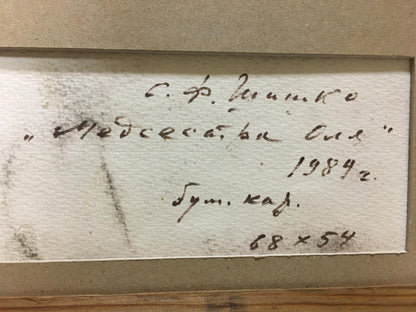 С. Ф. Шишко
„Медсестра Оля"
1984 г.
бум. кар.
68 × 54